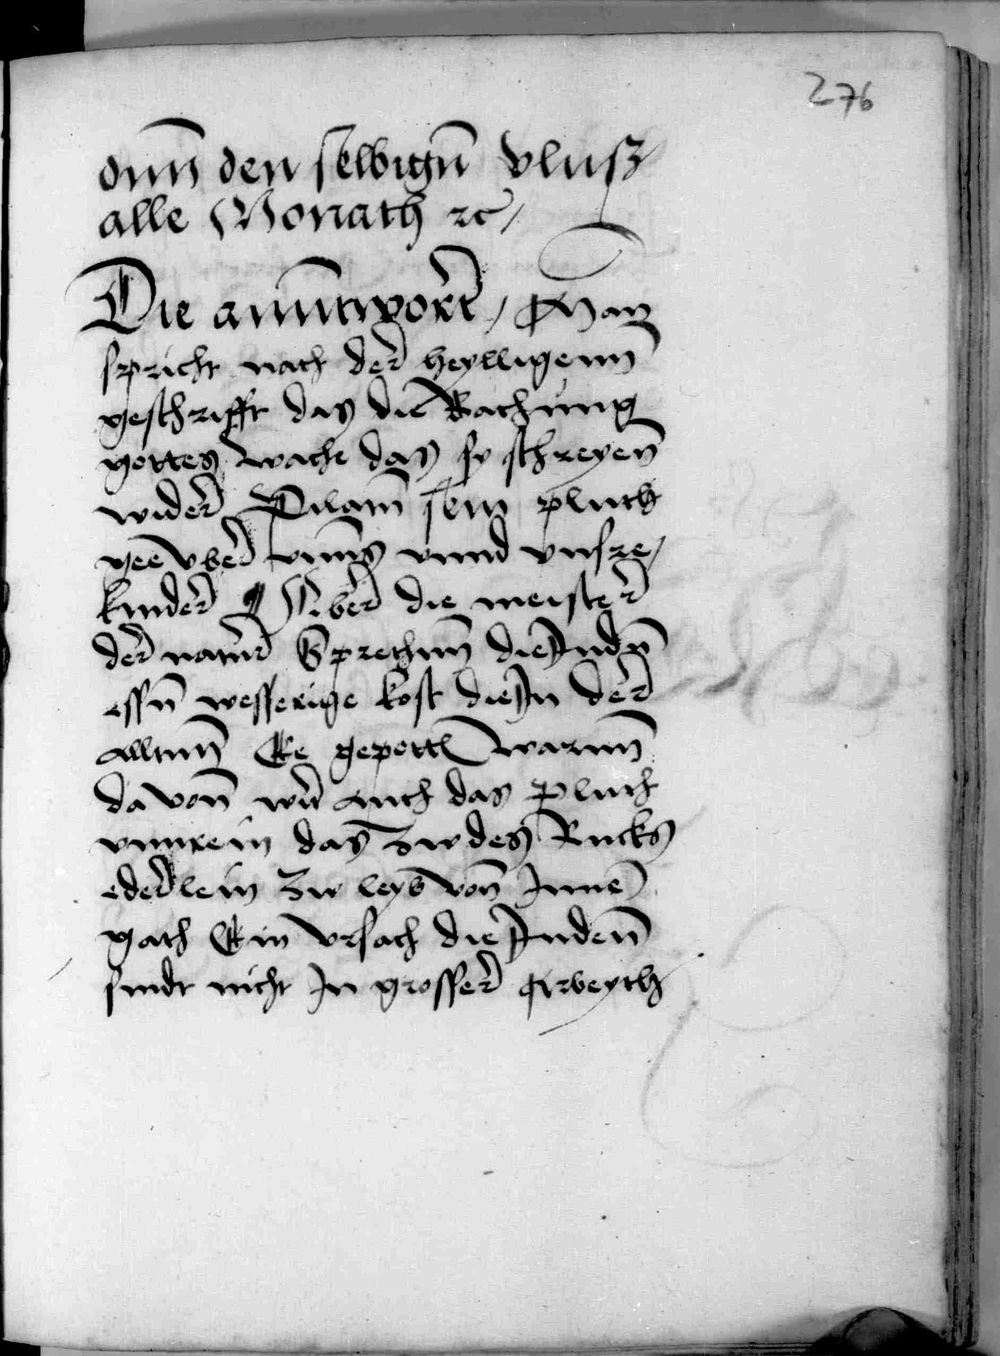 276
dnn den selbign̄ vlusz
alle Monath ꝛc /
Die anntwortt / Man
spricht nach der heylligenn
geschrifft das die Rachung
gottes wache das sy schreyen
wider Pilam̄ sein pluth
gee vber vnns vnnd vnsre /
kinder ¶ Aber die meister
der natur Sprechnn die Judn̄
essn̄ wesserige kost die In der
alltnn Ee gepottn warnn
davon wir auch das pluth
vnnrein das zw des Rucks
ederlein zw leyb von Inne
gath Ein vrsach die Judenn
sindt nicht In grosser Arbeyth